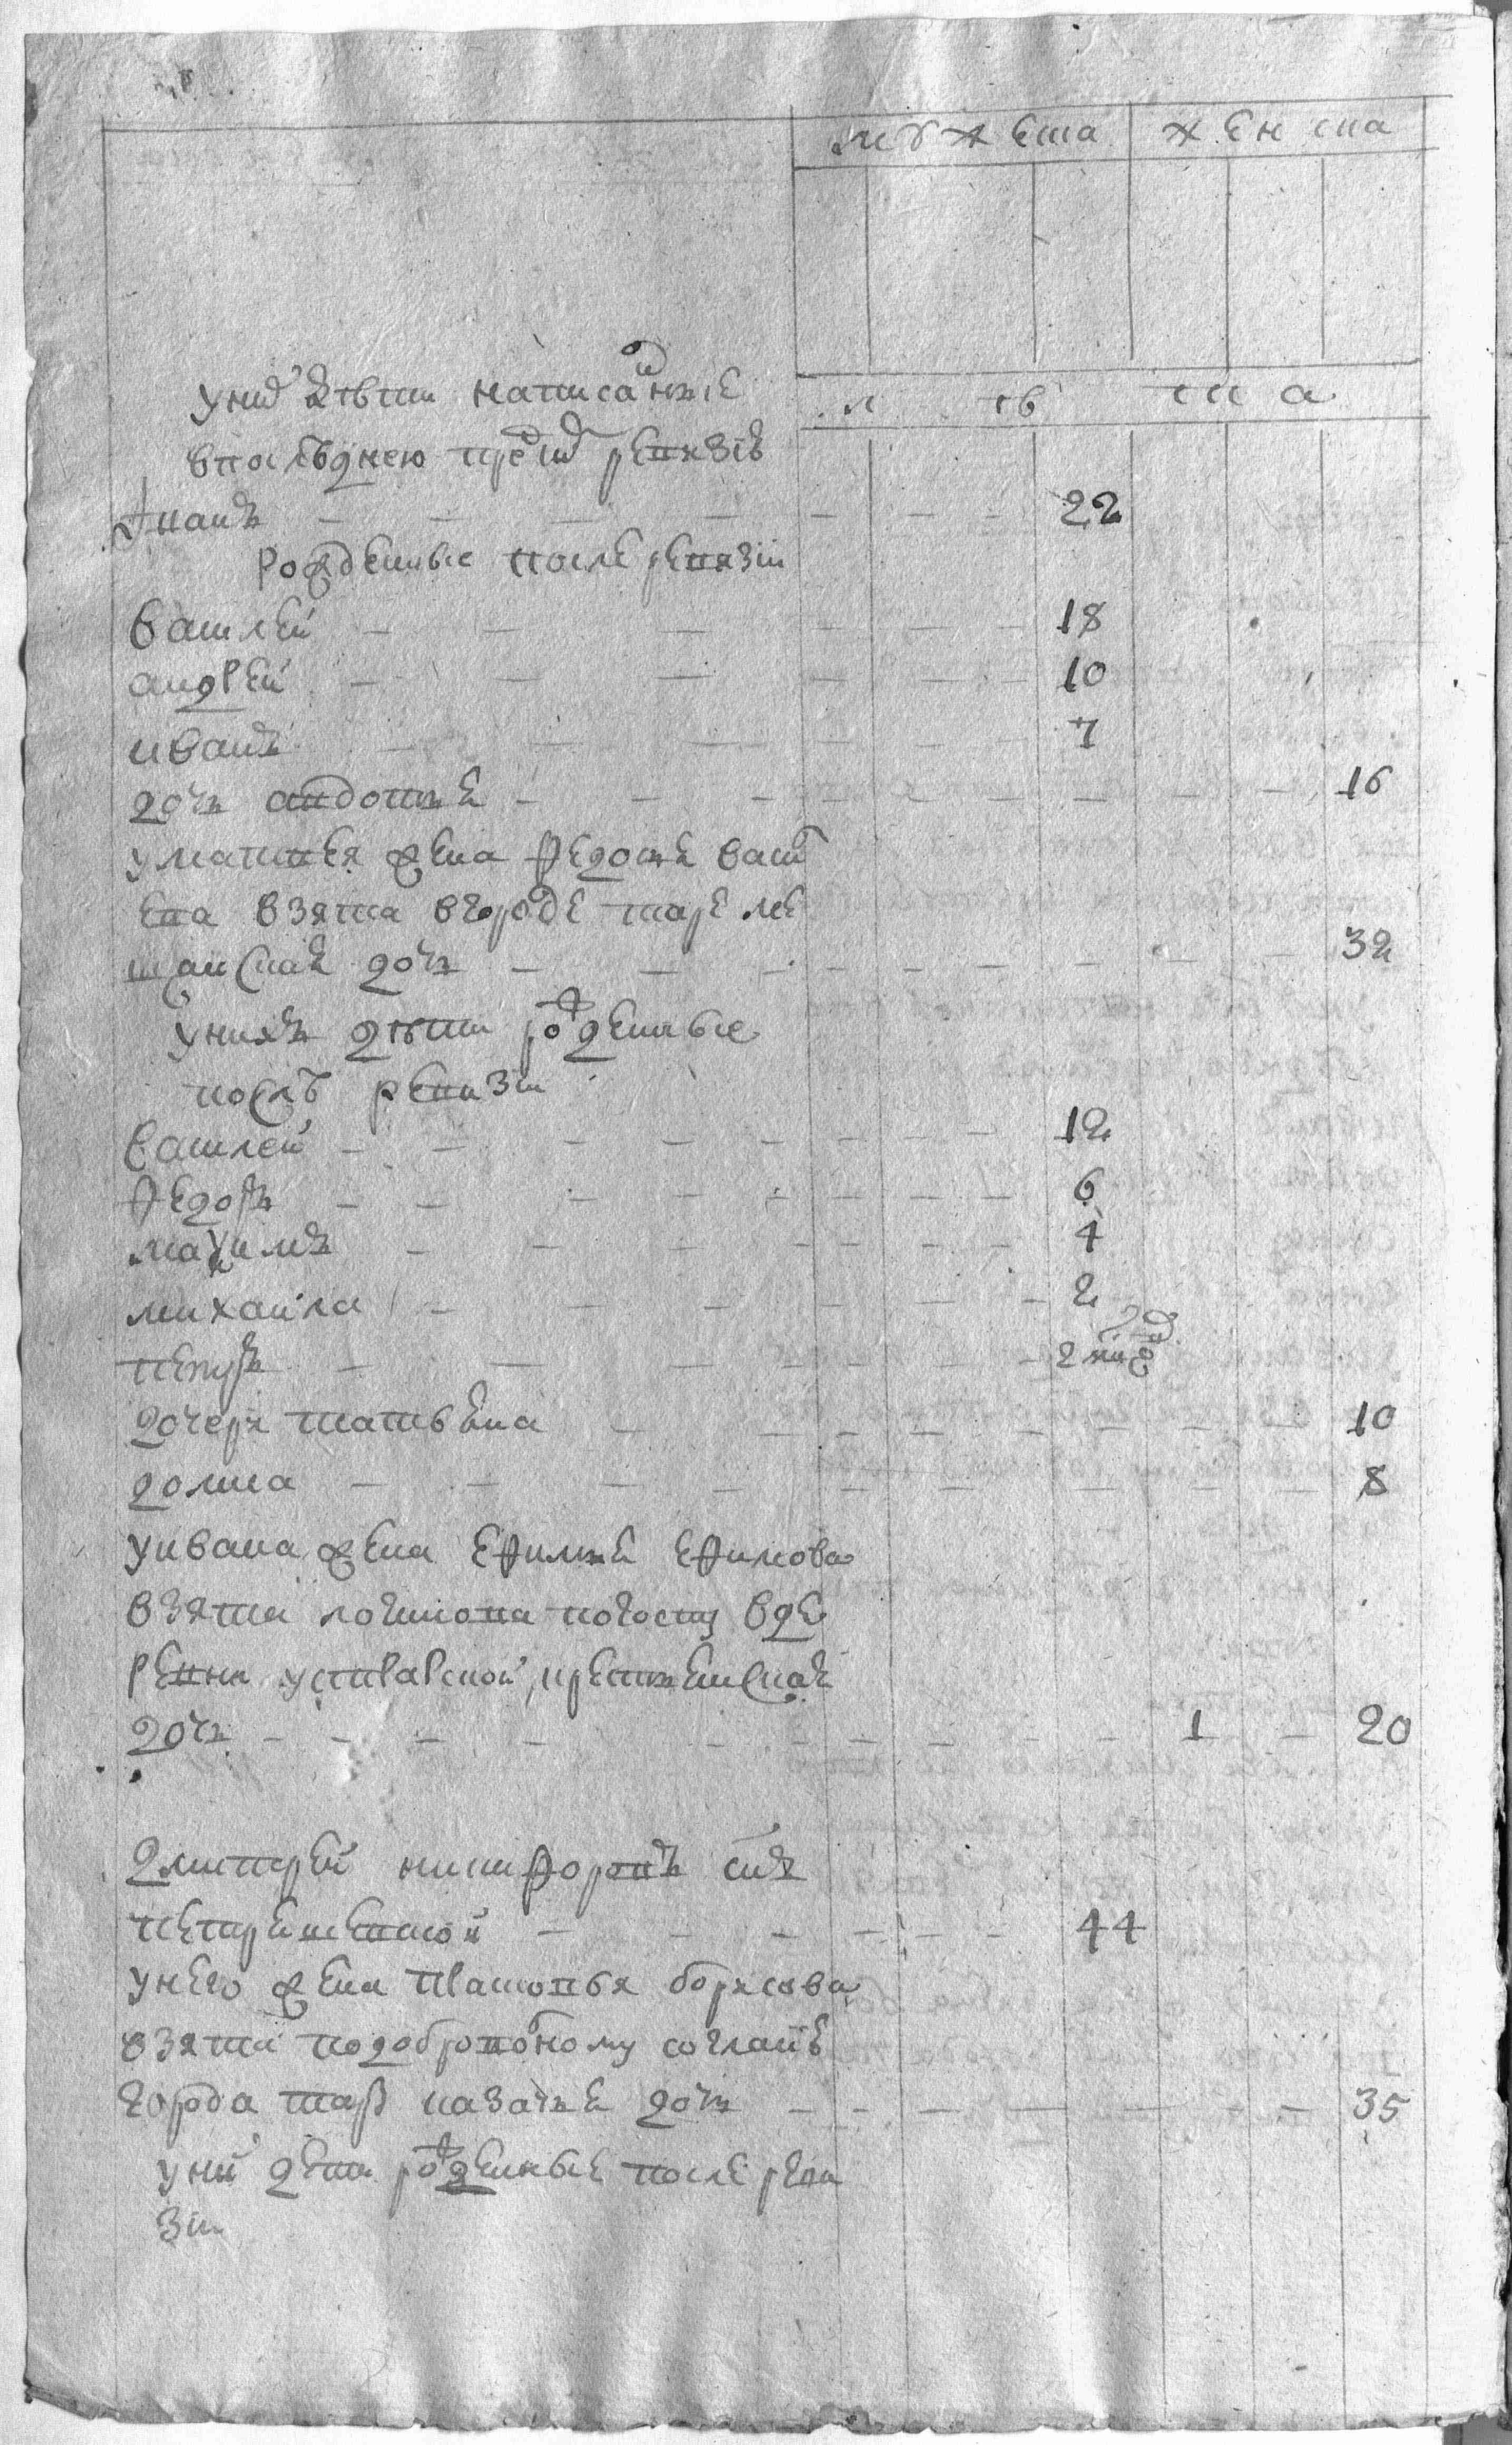 мужеска женска
л ѣ т а
у них дѣти написанные
в последнею пред сим ревизiѣ
Иванъ 22
рожденные после ревизiи
василей 18
андрей 10
иванъ 7
дочь авдотья 16
у матвея жена федосья васил
ева взята в городе таре ме
щанская дочь 32
у нихъ дѣти рожденные
послѣ ревизiи
василей 12
федоръ 6
максимъ 4
михайла 2
петръ 2 нед
дочеря татьяна 10
домна 8
у ивана жена ефимья ефимова
взята логинова погосту в де
ревни уставской крестьенская
дочь 1 20
дмитрей никифоровъ сынъ
у него жена соловья борисова
взята по добровоному согласiе
города тары казачья дочь 35
у них дети рожденные после реви
зiи
44